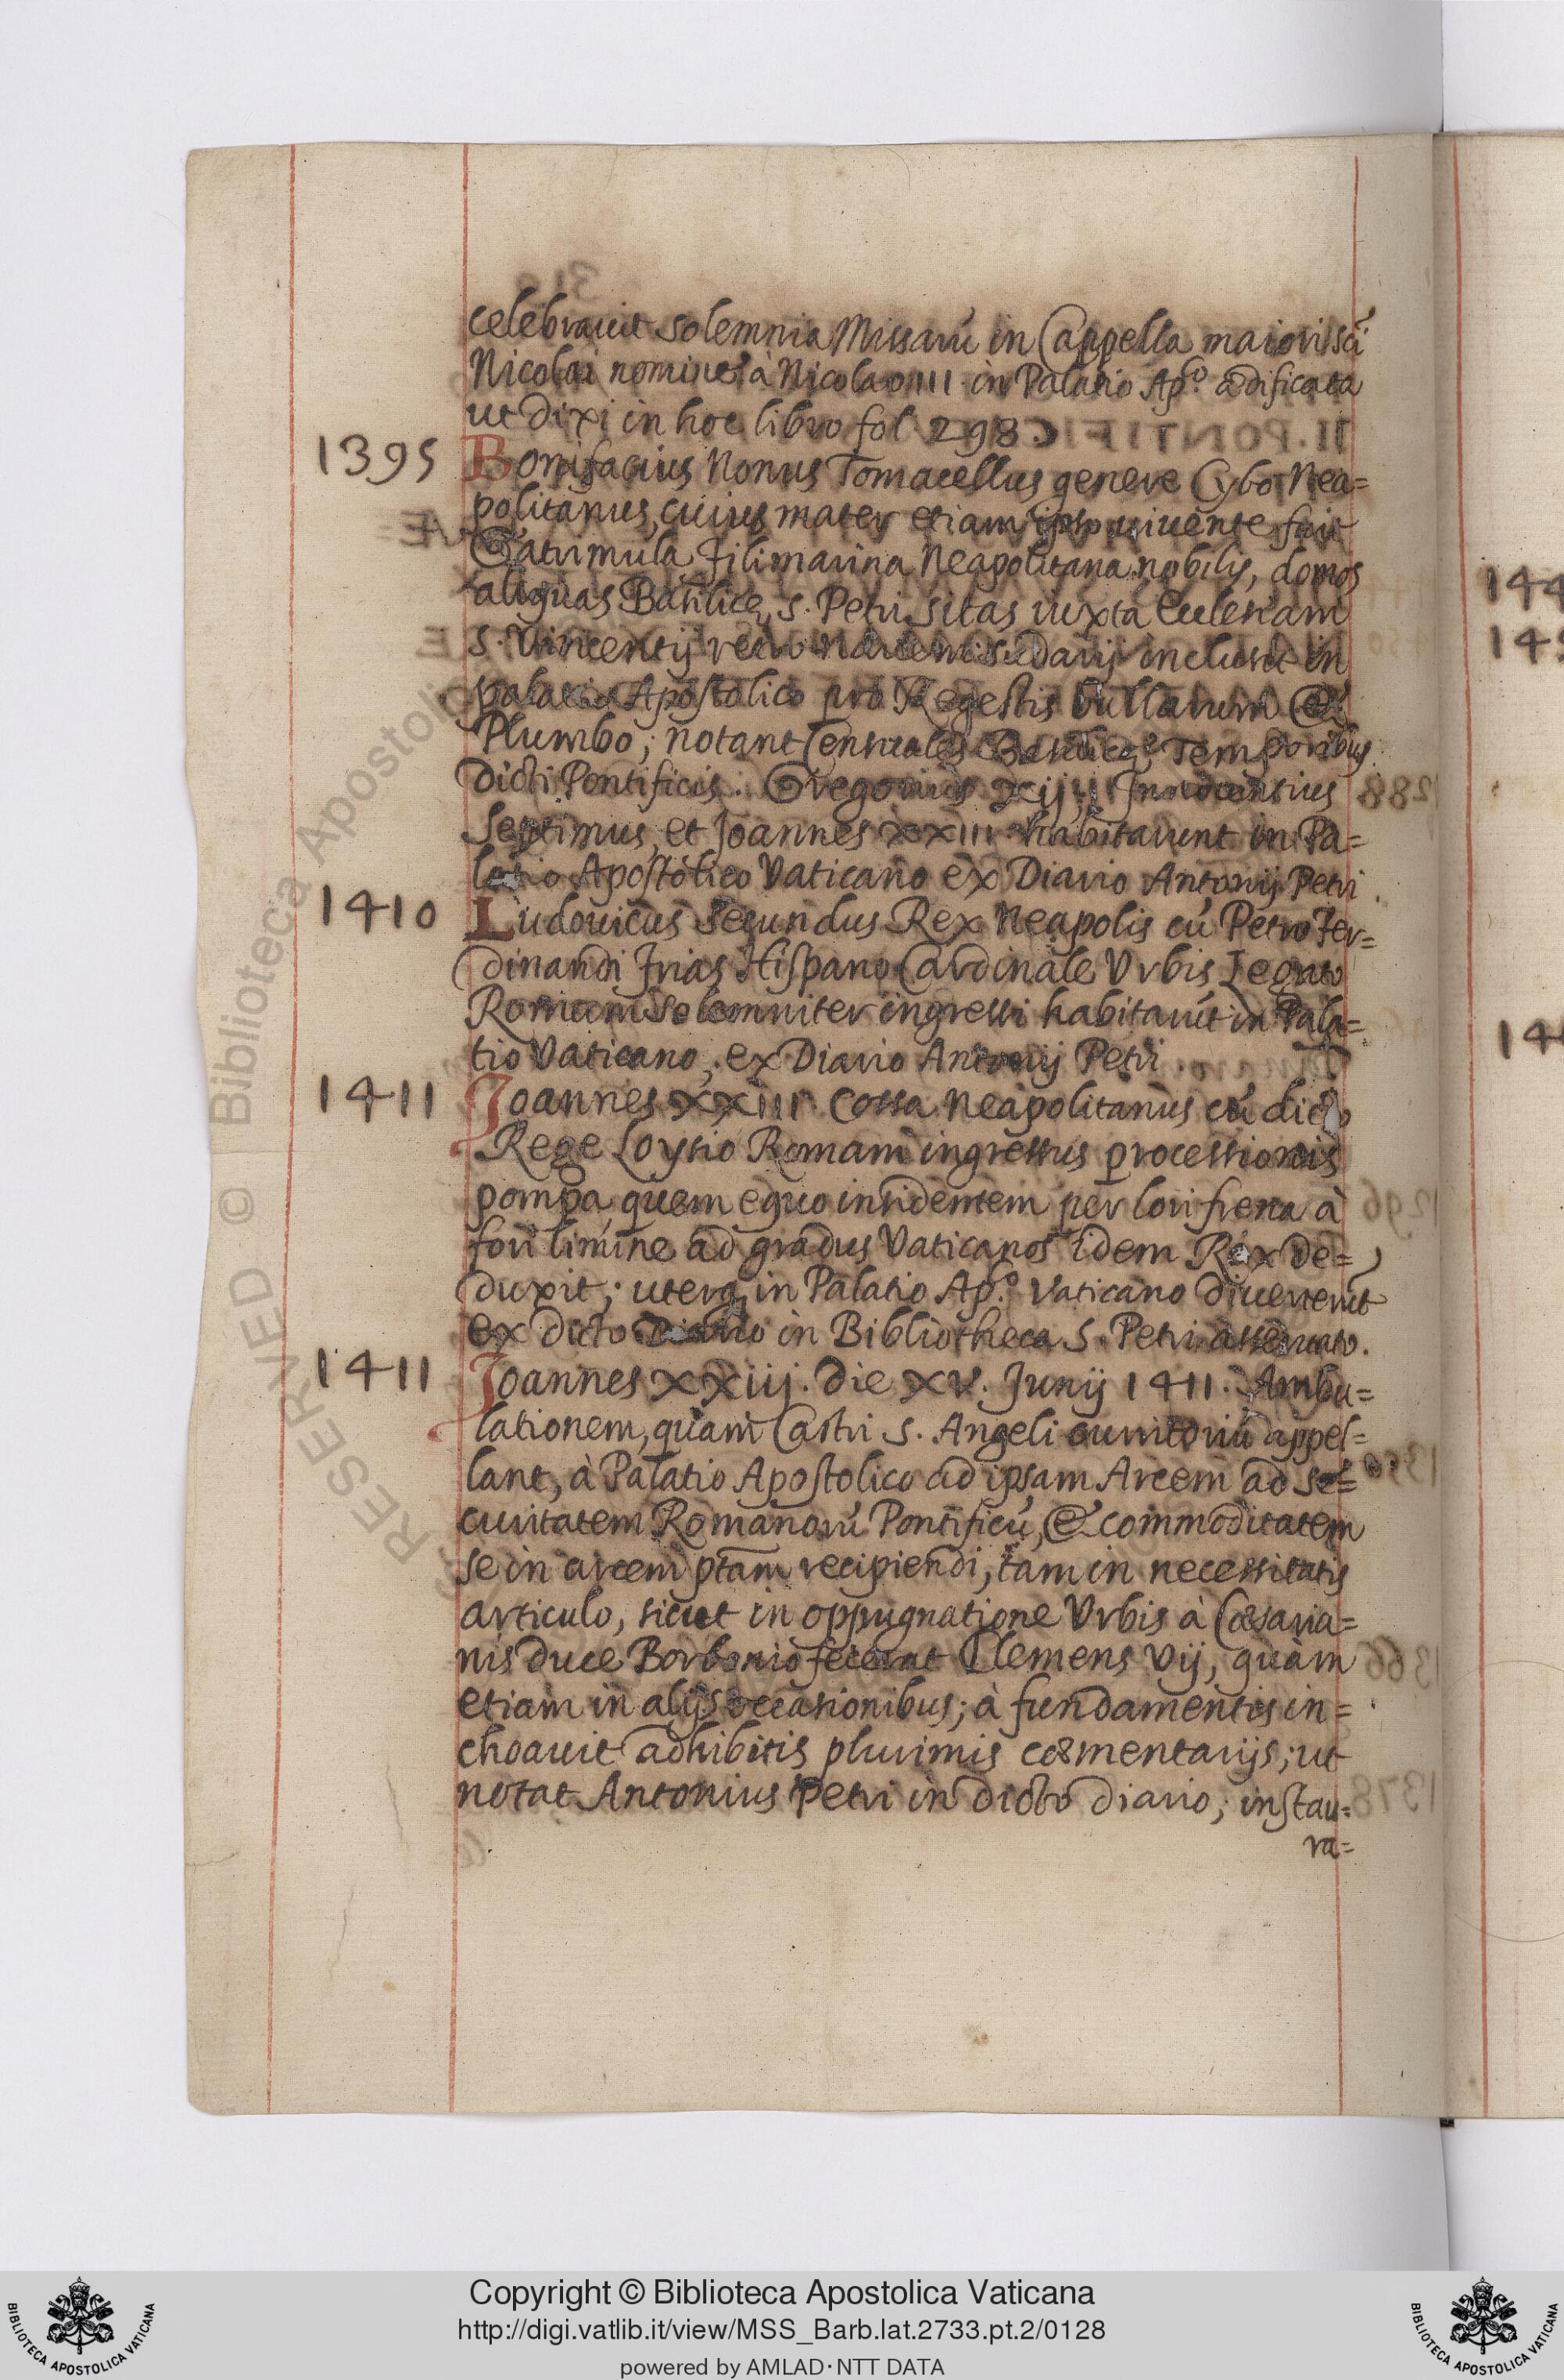 celebrauit solemnia Missarú in Cappella maiori sci
Nicolai nomine à Nicolao III in Palatio Ap.º ædificata
ut dixi in hoc libro fol 298.
1395 Bonifacius Nonus Tomacellus genere Cybo Nea=
politanus, cuius mater etiam ipso uiuente fuit
Gatrimula Filimarina Neapolitana nobilis, domos
aliquas Basilicę s. Petri sitas iuxta Ecclesiam
s. Vincentij retro sudarij inclusit in
palatio Apostolico pro Regestis bullarum &
Plumbo; notant Censuales Basilicę Temporibus
dicti Pontificis. Gregorius xij, Innocentius
Septimus, et Joannes XXIII habitarunt in Pa=
latio Apostolico Vaticano ex Diario Antonij Petri
1410 Ludouicus Secundus Rex Neapolis cú Petro Fer=
dinandi Frias Hispano Cardinale Vrbis Legato
Romam solemniter ingressi habitarút in Pala=
tio Vaticano, ex Diario Antonij Petri
1411 Joannes XXIII Cossa Neapolitanus cú dicto
Rege Loysio Romam ingressus processionis
pompa quem equo insidentem per lori frena à
fori limine ad gradus Vaticanos idem Rex de=
duxit; uterq; in Palatio Ap.º Vaticano diuerterút
ex dicto Diario in Bibliotheca S. Petri asseruato.
1411 Joannes XXiij. die XV. Junij 1411. Ambu=
lationem, quam Castri S. Angeli curritoriú appel=
lant, à Palatio Apostolico ad ipsam Arcem ad se=
curitatem Romanorú Pontificú, & commoditatem
se in arcem ptam recipiendi, tam in necessitatis
articulo, sicut in oppugnatione Vrbis à Cæsaria=
nis duce Borbonio fecerat Clemens Vij, quàm
etiam in alijs occasionibus; à fundamentis in=
choauit adhibitis plurimis cæmentarijs; ut
notat Antonius Petri in dicto diario; instau=
ra=
144
14
RESERVED © Biblioteca Apostolic
Copyright © Biblioteca Apostolica Vaticana
http://digi.vatlib.it/view/MSS_Barb.lat.2733.pt.2/0128
powered by AMLAD·NTT DATA
BIBLIOTECA APOSTOLICA VATICANA
BIBLIOTECA APOSTOLICA VATICANA